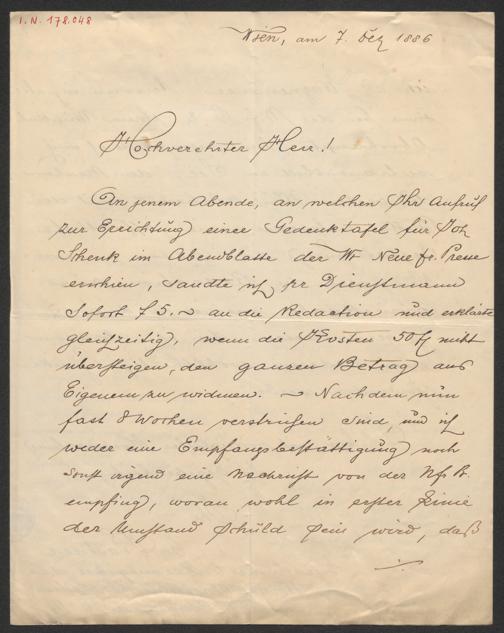 I.N. 178.048
Wien, am 7. Dez 1886
Hochverehrter Herr!
An jenem Abende, an welchen Ihr Aufruf
zur Errichtung einer Gedenktafel für Joh
Schenk im Abendblatte der Wr Neue fr. Presse
erschien, sandte ich pr Dienstmann
sofort f 5.~ an die Redaction und erklärte
gleichzeitig, wenn die Kosten 50 f nicht
übersteigen, den ganzen Betrag aus
Eigenem zu widmen. ~ Nachdem nun
fast 8 Wochen verstrichen sind, und ich
weder eine Empfangsbestättigung noch
sonst irgend eine Nachricht von der N. fr. Pr.
empfing, woran wohl in erster Linie
der Umstand Schuld sein wird, daß